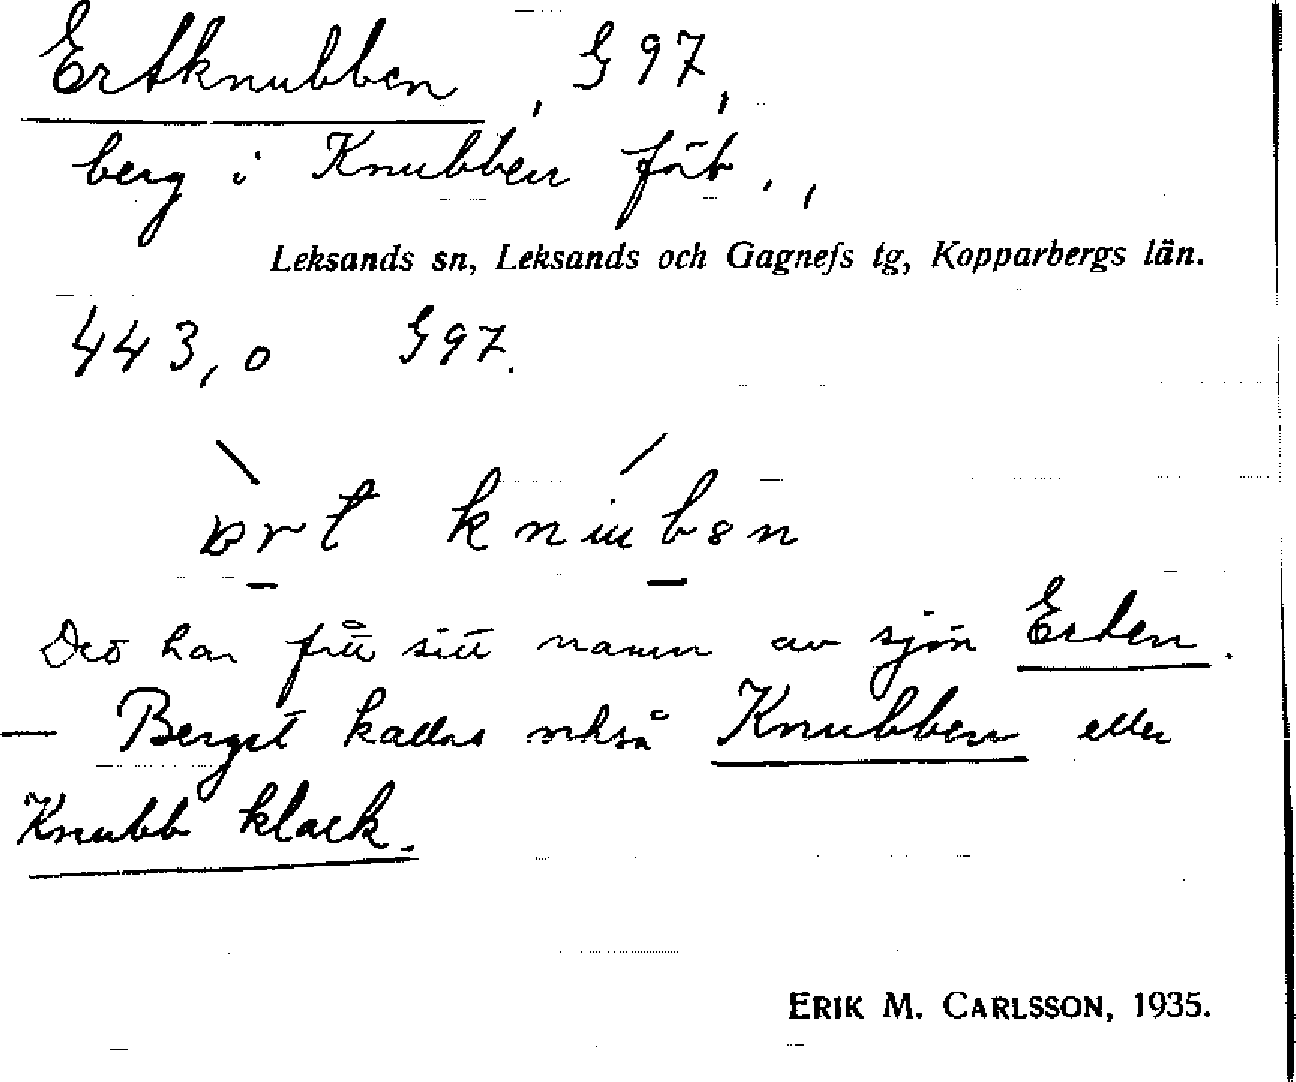 Ertknubben, G 97,
berg i Knubben fäb.,
Leksands sn, Leksands och Gagnefs tg, Kopparbergs län.
443,0 G 97.
Det har fått sitt namn av sjön Erten.
— Berget kallas också Knubben eller
Knubb klack.
ERIK M. CARLSSON, 1935.